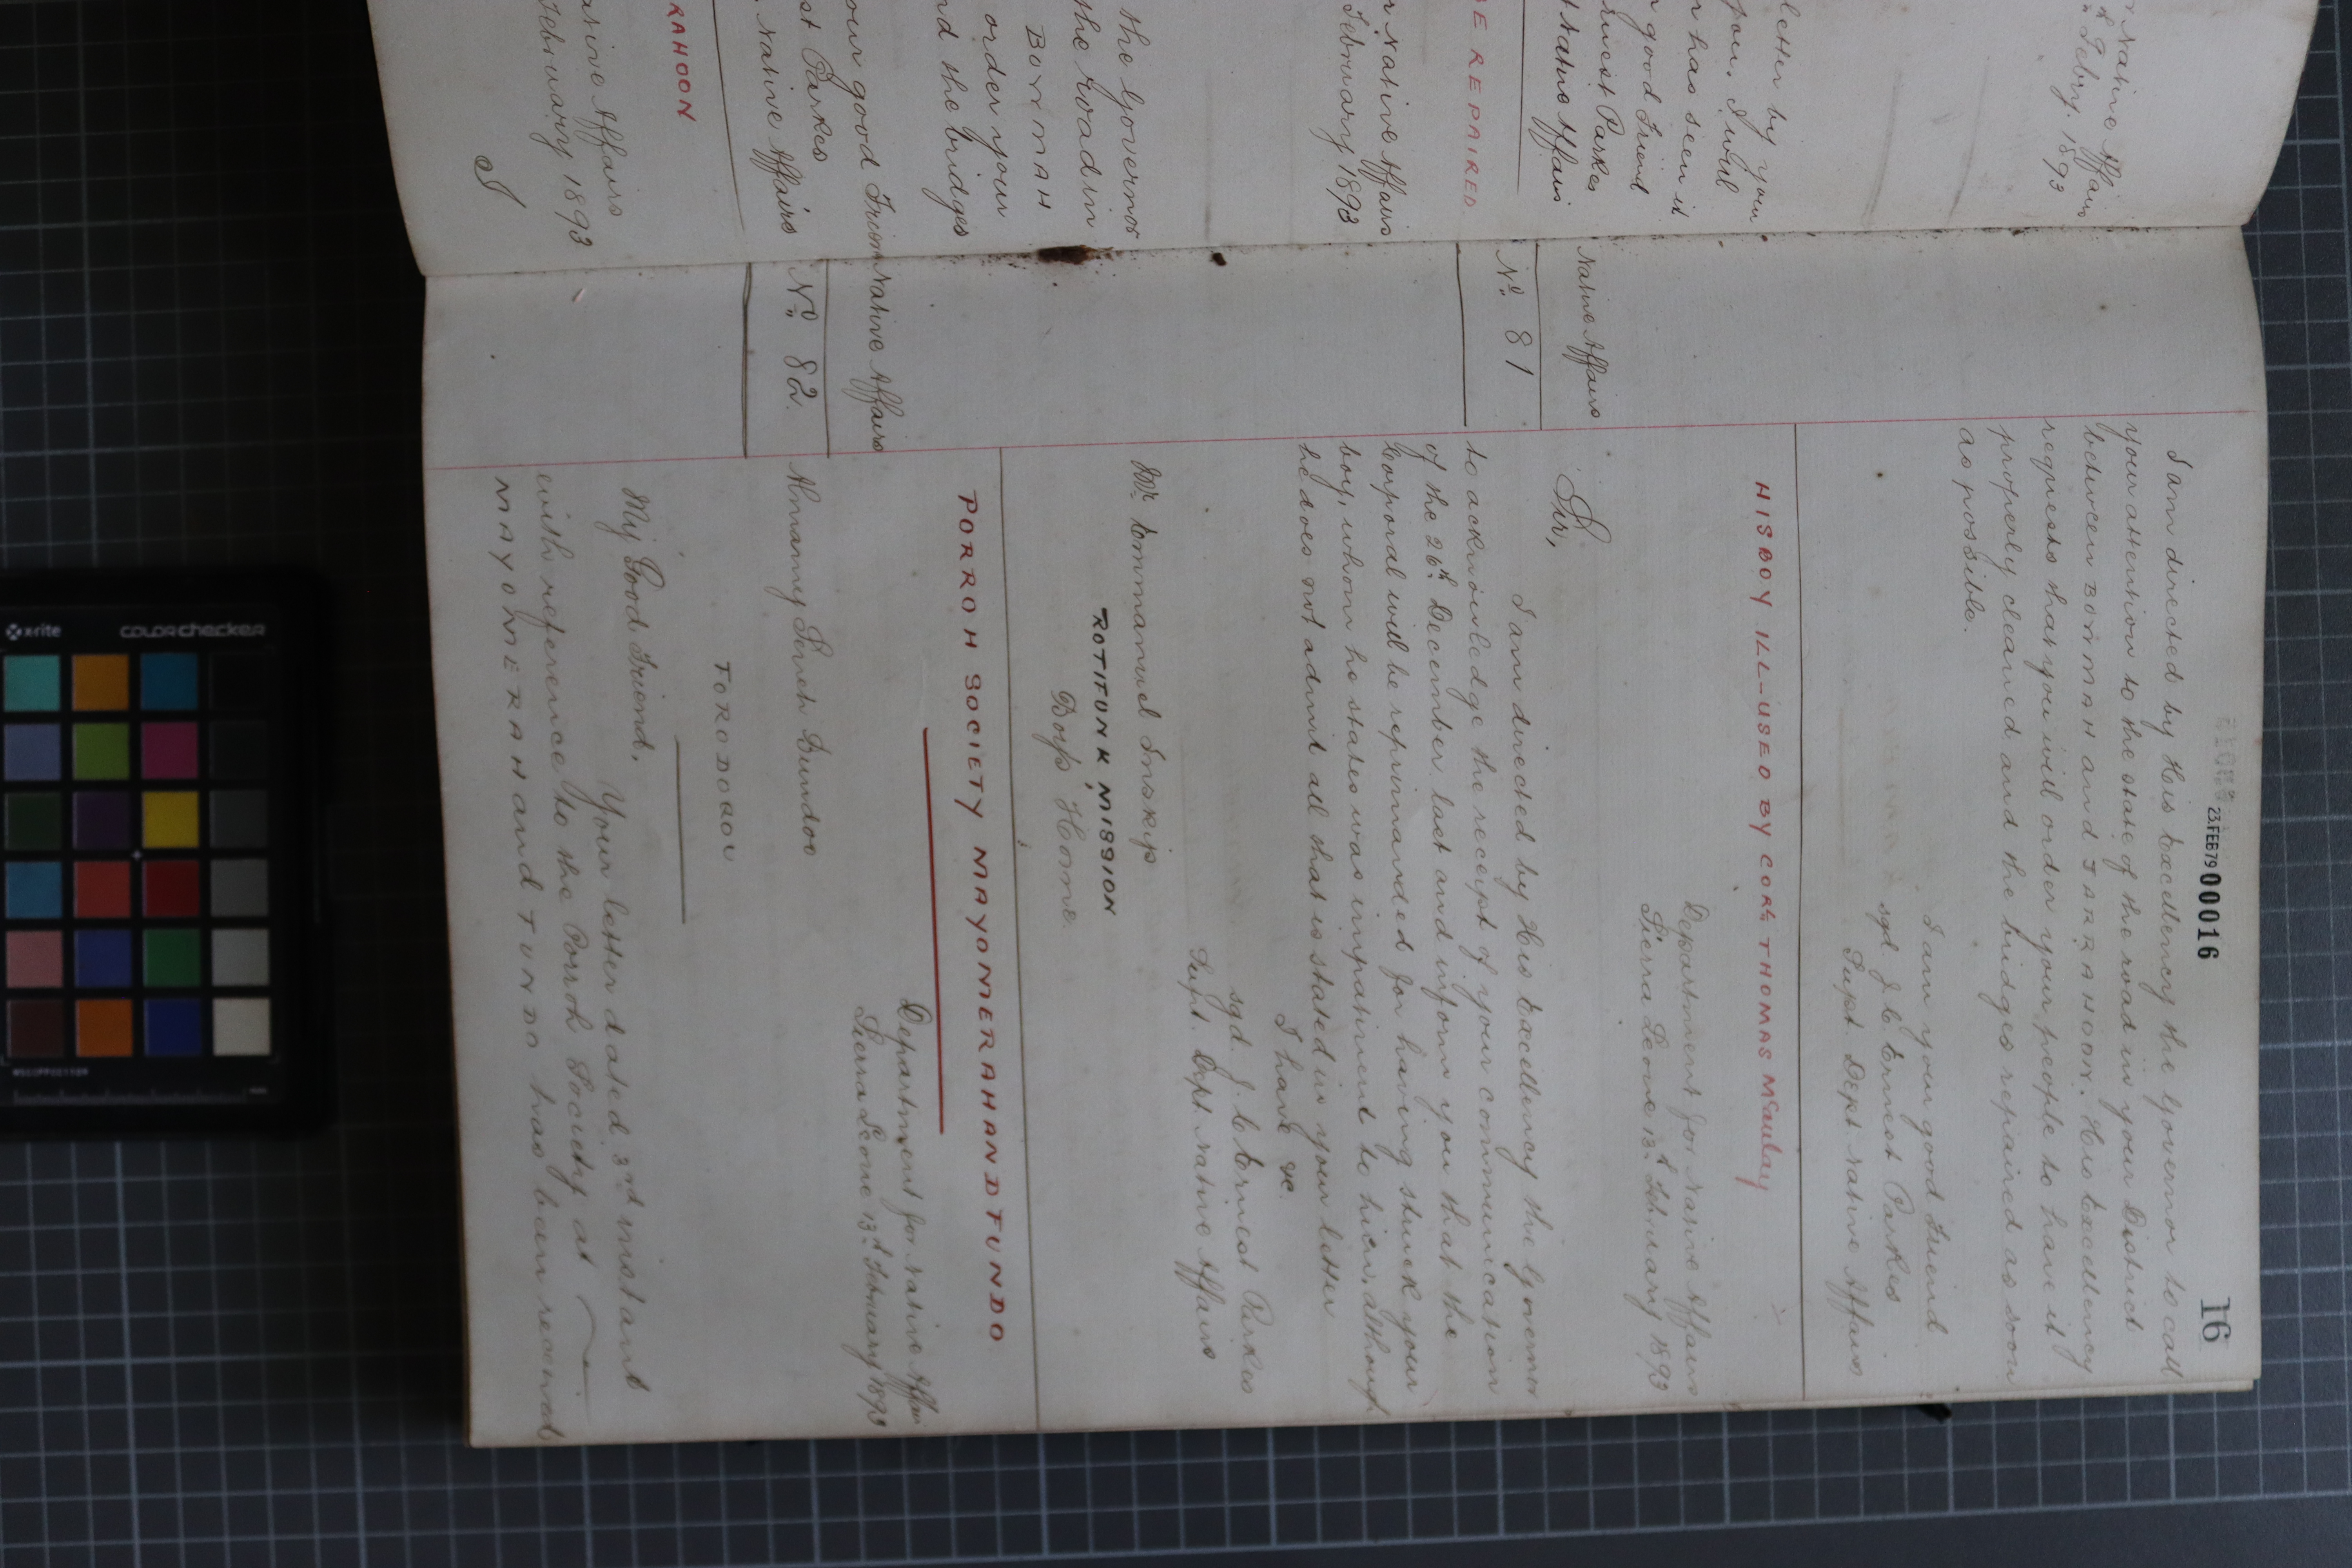 16
23.FEB79 00016
I am directed by His Excellency the Governor to call
your attention to the state of the road in your District
between BOYMAH and JARRAHOON. His Excellency
requests that you will order your people to have it
properly cleaned and the bridges repaired as soon
as possible.
I am your good Friend
sgd. J. C. Ernest Parkes
Supt. Dept. Native Affairs
HIS BOY ILL-USED BY CORPL THOMAS McCaulay
Native Affairs
No. 81
Department for Native Affairs
Sierra Leone 13th February 1893
Sir,
I am directed by His Excellency the Governor
to acknowledge the receipt of your communication
of the 26th December last and inform you that the
Corporal will be reprimanded for having struck your
boy, whom he states was impertinent to him, although
he does not admit all that is stated in your letter
I have &c.
sgd. J. C. Ernest Parkes
Supt. Dept. Native Affairs
Mr. Emmanuel Inskip
ROTIFUNK MISSION
Boys' Home.
PORROH SOCIETY MAYOMERAH AND FUNDO
Native Affairs
No. 82.
Department for Native Affairs
Sierra Leone 13th February 1893
Almamy Sereh Bundoo
FORODOROU
My Good Friend,
Your letter dated 3rd instant
with reference to the Porroh Society at
MAYOMERAH and FUNDO has been received
r Native Affairs
Feby. 1893
letter by your
you. I will
n has seen it
good Friend
Ernest Parkes
Native Affairs
BE REPAIRED.
r Native Affairs
February 1893
the Governor
the road in
BOYMAH
order your
nd the bridges
our good Friend
st Parkes
Native Affairs
RAHOON
ative Affairs
February 1893
I
x-rite
colorchecker